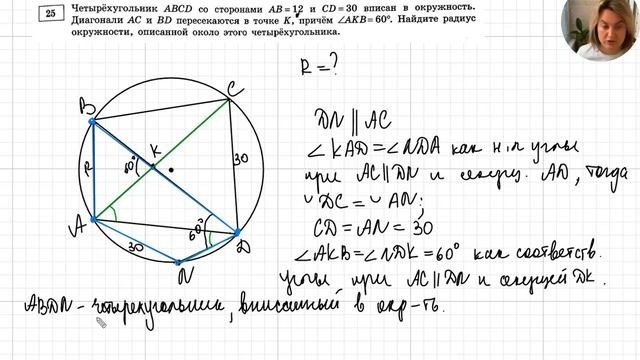 25
Четырёхугольник ABCD со сторонами AB = 12 и CD = 30 вписан в окружность.
Диагонали AC и BD пересекаются в точке K, причём ∠AKB = 60°. Найдите радиус
окружности, описанной около этого четырёхугольника.
R = ?
DN || AC
∠KAD = ∠NDA как н/л углы
при AC || DN и секущ. AD, тогда
◡DC = ◡AN;
CD = AN = 30
∠AKB = ∠NDK = 60° как соответств.
углы при AC || DN и секущей DK.
ABDN - четырехугольник, вписанный в окр-ть.
B
C
K
60°
30
A
60°
D
30
N